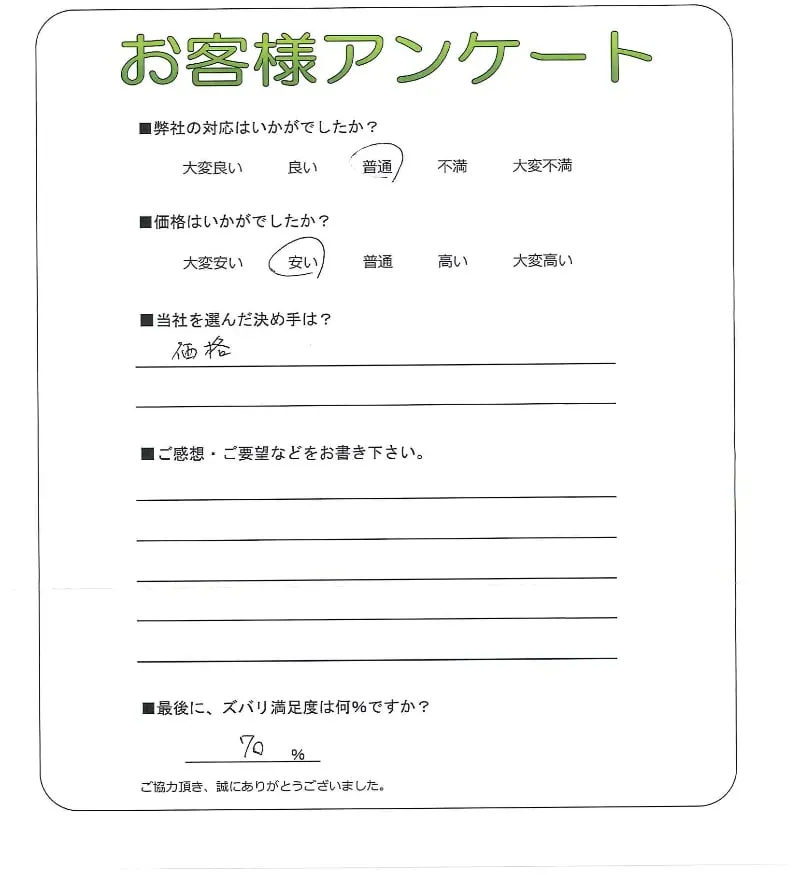 お客様アンケート
■弊社の対応はいかがでしたか？
大変良い 良い 普通 不満 大変不満
■価格はいかがでしたか？
大変安い 安い 普通 高い 大変高い
■当社を選んだ決め手は？
価格
■ご感想・ご要望などをお書き下さい。
■最後に、ズバリ満足度は何％ですか？
70 %
ご協力頂き、誠にありがとうございました。